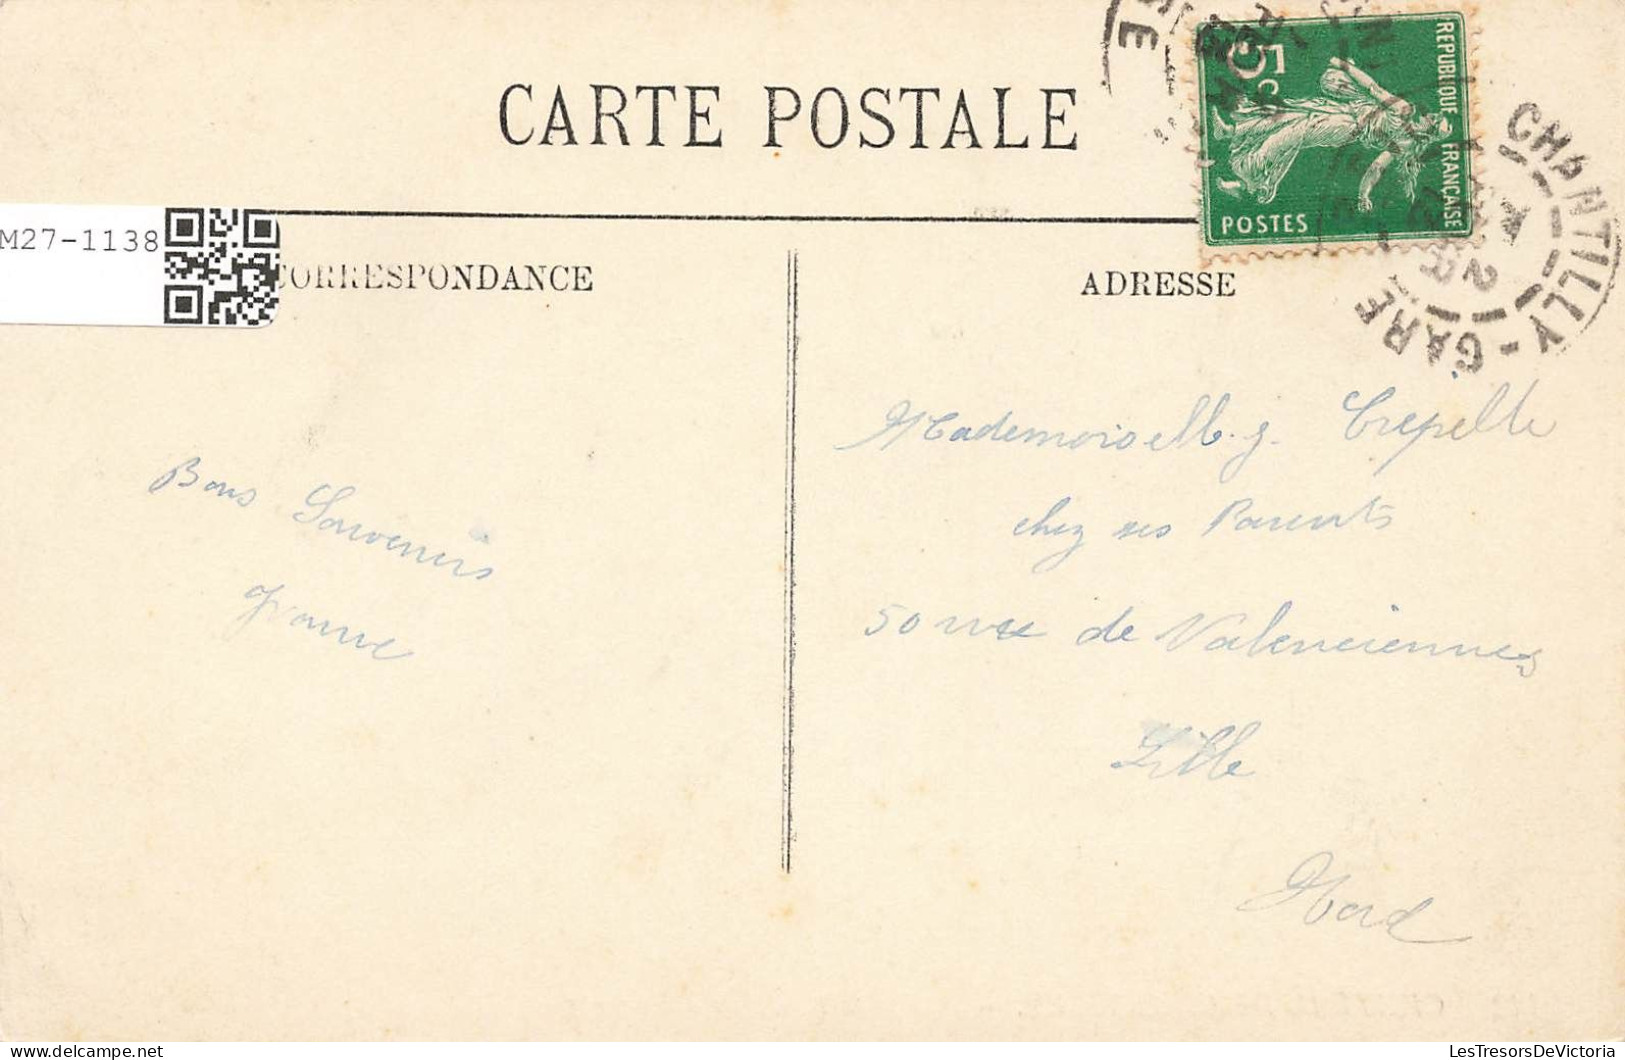 CARTE POSTALE
M27-1138
CORRESPONDANCE
ADRESSE
5c
REPUBLIQUE FRANÇAISE
POSTES
CHANTILLY - GARE
Bons Souvenirs
Mademoiselle. J. Crepelle
chez ses Parents
50 rue de Valenciennes
Lille
Nord
delcampe.net
LesTresorsDeVictoria